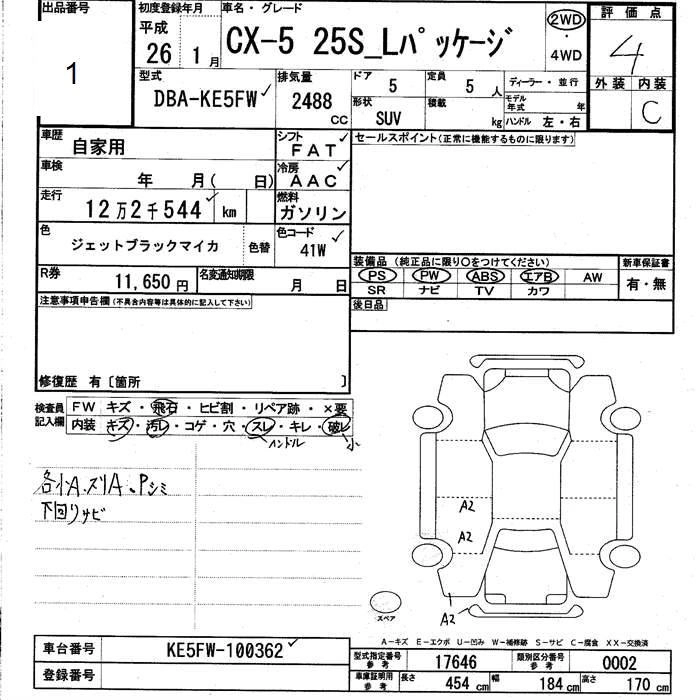 出品番号
1
初度登録年月
平成
26 1月
車名・グレード
CX-5 25S_Lパッケージ
2WD
・
4WD
評価点
4
外装 内装
C
型式
DBA-KE5FW
排気量
2488
CC
ドア
5
定員
5 人
形状
SUV
積載
kg
ディーラー・並行
モデル
年式 年
ハンドル 左・右
車歴
自家用
シフト
FAT
車検
年 月( 日)
冷房
AAC
走行
12万2千544 km
燃料
ガソリン
色
ジェットブラックマイカ
色替
色コード
41W
R券
11,650円
名変通知期限
月 日
セールスポイント(正常に機能するものに限ります)
装備品 (純正品に限り○をつけてください)
PS PW ABS エアB AW
SR ナビ TV カワ
新車保証書
有・無
後日品
注意事項申告欄(不具合内容等は具体的に記入して下さい)
修復歴 有〔箇所 〕
検査員
記入欄
FW キズ・飛石・ヒビ割・リペア跡・×要
内装 キズ・汚レ・コゲ・穴・スレ・キレ・破レ
ハンドル
小
各小A.スリA、Pシミ
下回りサビ
A2
A2
A2
スペア
A-キズ E-エクボ U-凹み W-補修跡 S-サビ C-腐食 XX-交換済
車台番号
KE5FW-100362
登録番号
型式指定番号
参考
17646
類別区分番号
参考
0002
車庫証明用
参考
長さ
454 cm
幅
184 cm
高さ
170 cm